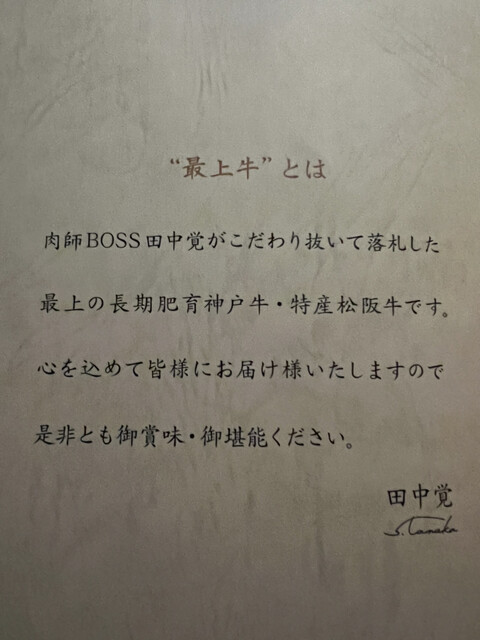 “最上牛”とは
肉師BOSS田中覚がこだわり抜いて落札した
最上の長期肥育神戸牛・特産松阪牛です。
心を込めて皆様にお届け様いたしますので
是非とも御賞味・御堪能ください。
田中覚
S.Tanaka